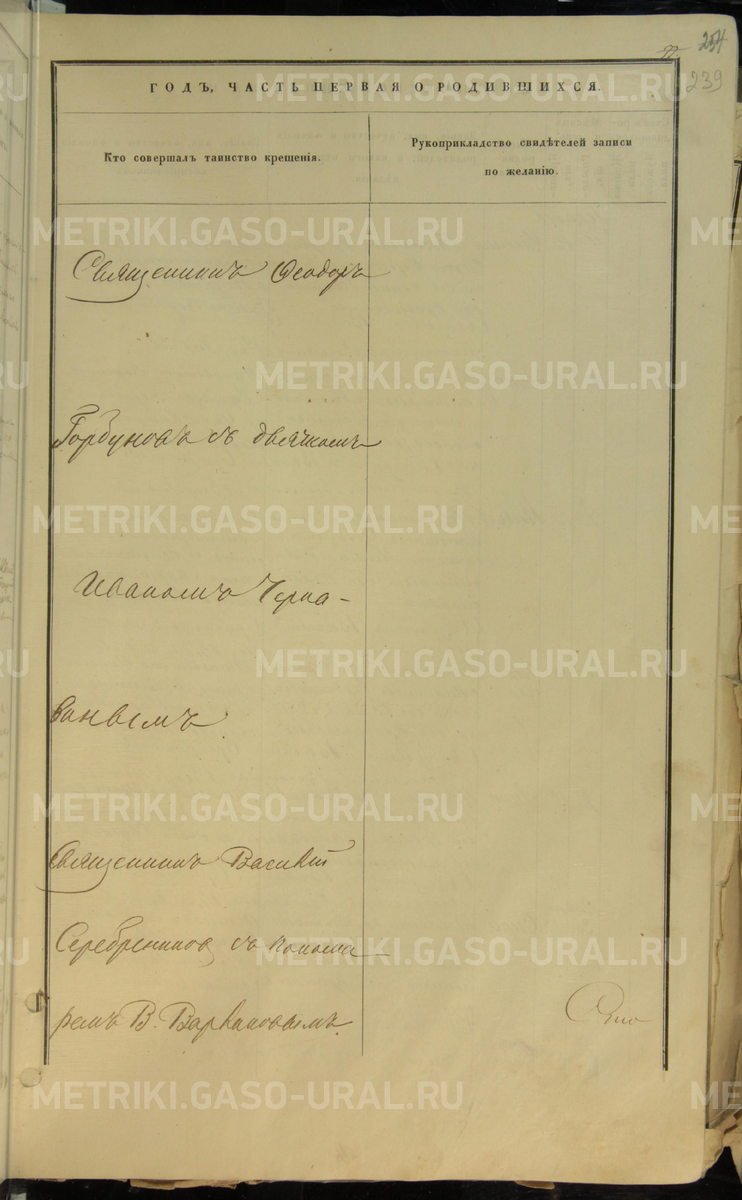 254
239
ГОДЪ, ЧАСТЬ ПЕРВАЯ О РОДИВШИХСЯ.
Кто совершалъ таинство крещенія.
Рукоприкладство свидѣтелей записи
по желанію.
Священникъ Ѳеодоръ
Горбуновъ съ дьячкомъ
Иваномъ Черна-
Священникъ Василій
Серебрениковъ съ понома
ремъ В.
METRIKI.GASO-URAL.RU